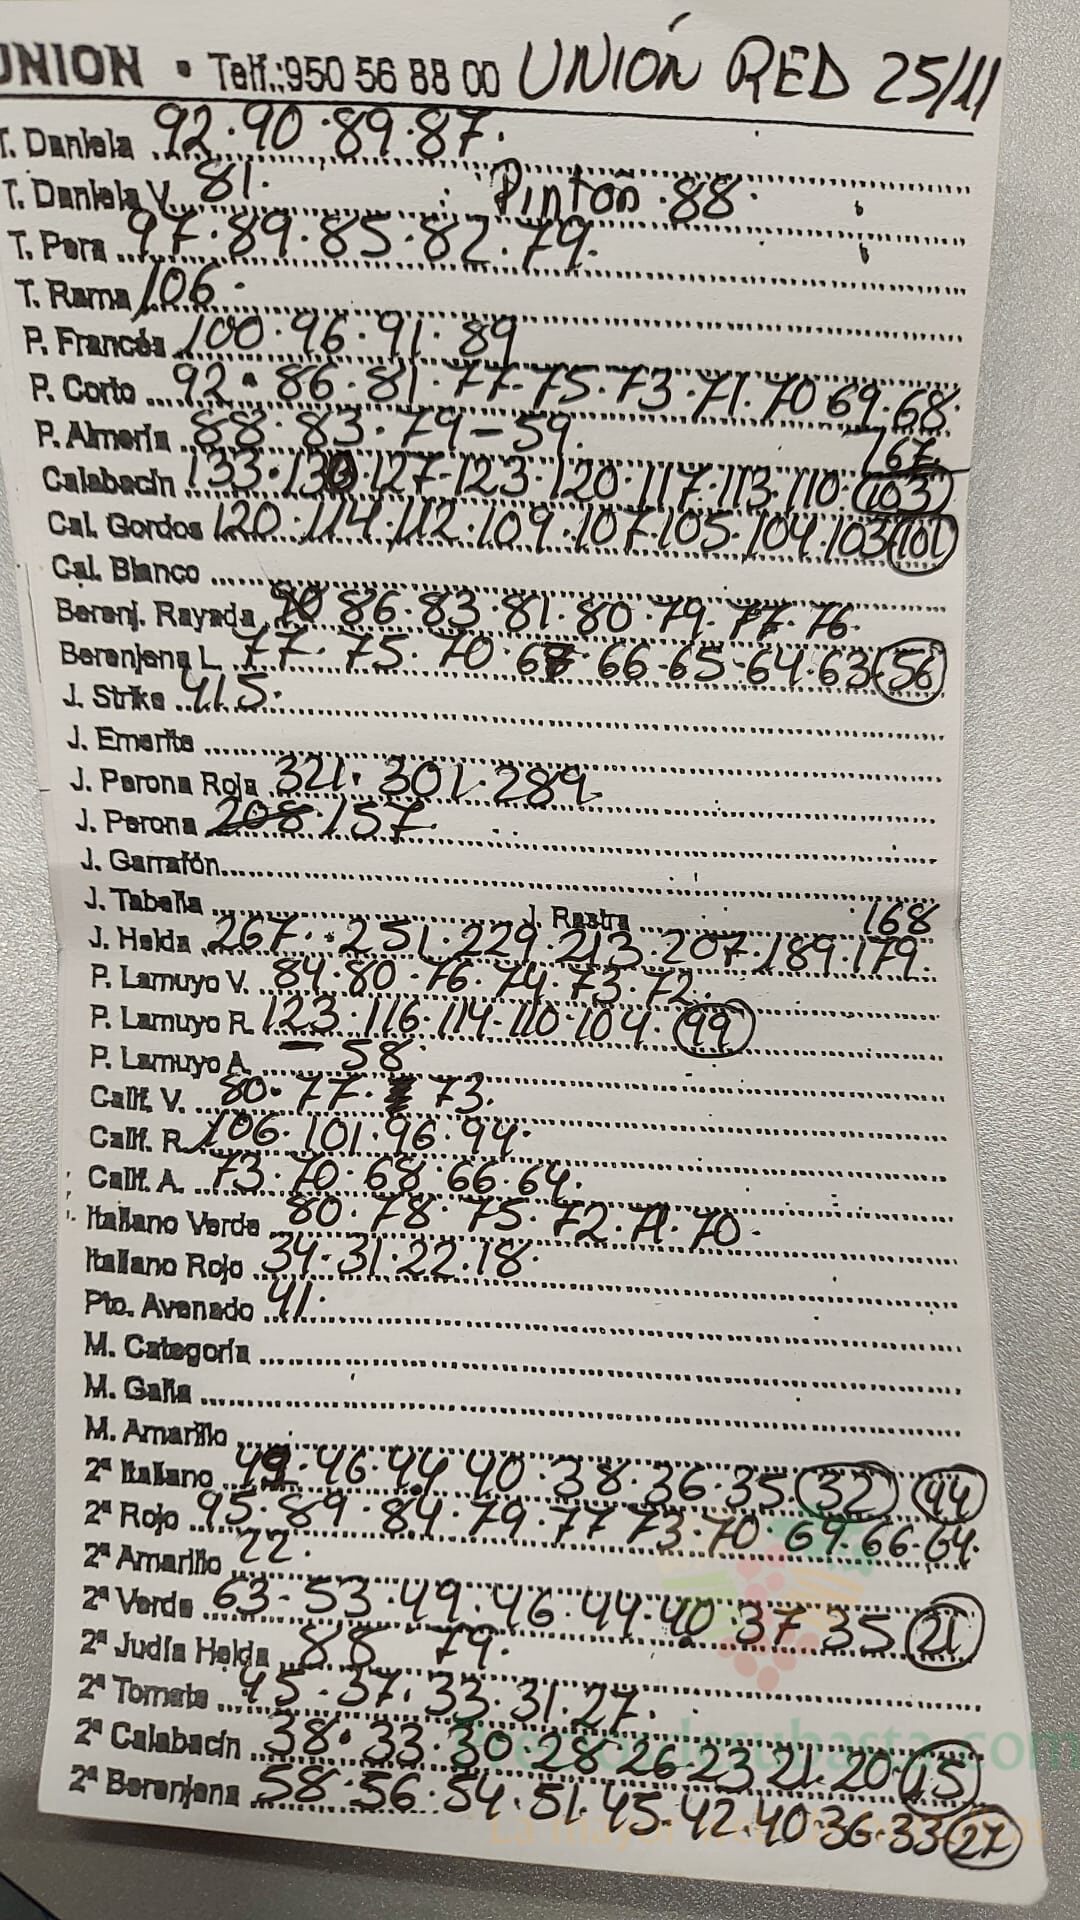 UNION • Telf.:950 56 88 00 UNIÓN RED 25/11
T. Daniela 92.90.89.87.
T. Daniela V. 81. Pintón.88.
T. Pera 97.89.85.82.79.
T. Rama 106.
P. Francés 100.96.91.89
P. Corto 92.86.81.77-75.73.71.70 69.68.
67.
P. Almería 88.83.79-59.
Calabacín 133.130.127-123.120.117.113.110.103
Cal. Gordos 120.114.112.109.107.105.104.103 101
Cal. Blanco
Berenj. Rayada 90 86.83.81.80.79.77.76.
Berenjena L. 77.75.70.67.66-65-64.63 56
J. Strike 415.
J. Emerite
J. Perona Roja 321.301.289
J. Perona 208.157.
J. Garrafón
J. Tabella J. Rastra 168
J. Helda 267.251.229.213.207.189.179.
P. Lamuyo V. 84.80.76.74.73.72.
P. Lamuyo R. 123.116.114-110.104.99
P. Lamuyo A. - 58.
Calif. V. 80.77. 73.
Calif. R. 106.101.96.94.
Calif. A. 73.70.68.66.64.
Italiano Verde 80.78.75.72.71.70.
Italiano Rojo 34.31.22.18.
Pto. Avenado 41.
M. Categoría
M. Galia
M. Amarillo
2ª Italiano 49.46.44 40.38.36.35.32 44
2ª Rojo 95.89.84.79.77 73.70.69.66.64.
2ª Amarillo 22.
2ª Verde 63-53.49.46.44.40.37.35 21
2ª Judía Helda 88 79.
2ª Tomate 45.37.33.31.27.
2ª Calabacín 38.33.30.28 26.23 21.20.15
2ª Berenjena 58.56.54.51.45.42.40.36.33 27